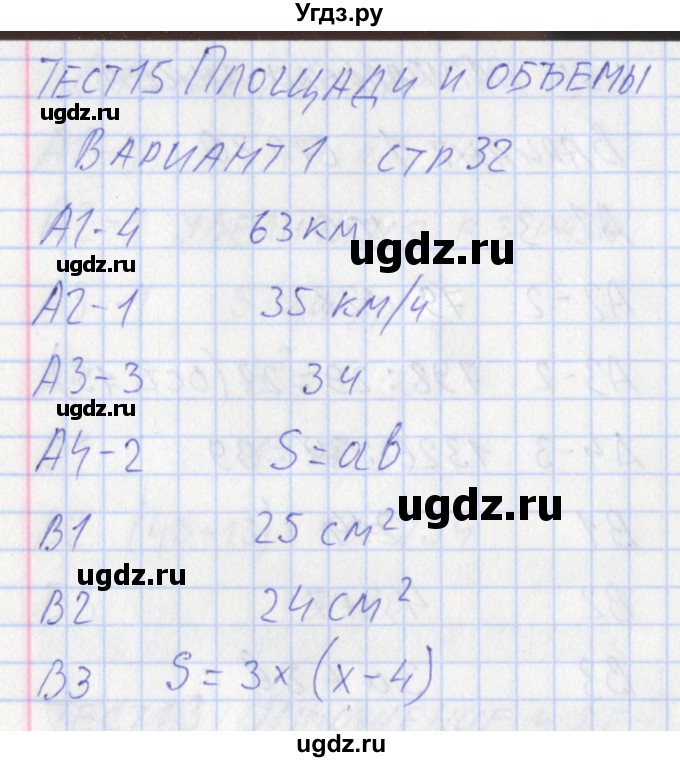 Угдз.ру
ТЕСТ 15 ПЛОЩАДИ И ОБЪЕМЫ
ugdz.ru
ВАРИАНТ 1 СТР 32
А1-4 63 км
ugdz.ru
ugdz.ru
А2-1 35 км/ч
А3-3 3ч
ugdz.ru
А4-2 S=ab
ugdz.ru
В1 25 см²
ugdz.ru
В2 24 см²
В3 S=3x(x-4)
ugdz.ru